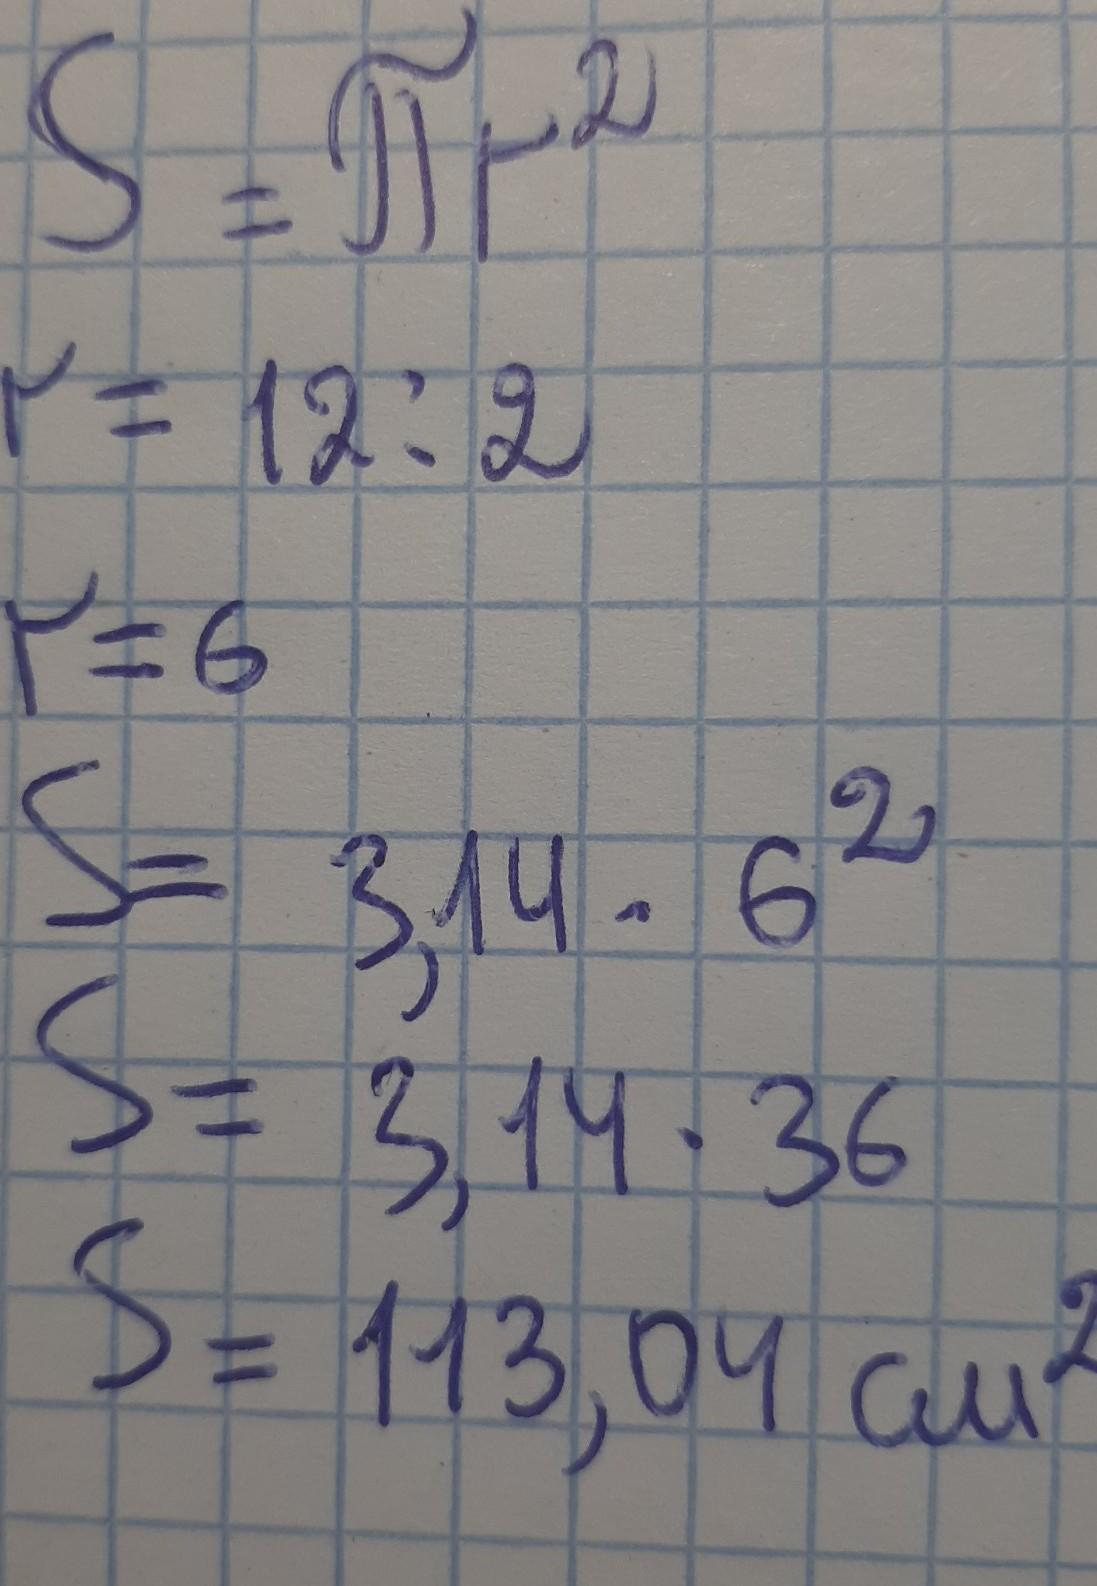 S = πr²
r = 12 : 2
r = 6
S = 3,14 · 6²
S = 3,14 · 36
S = 113,04 см²